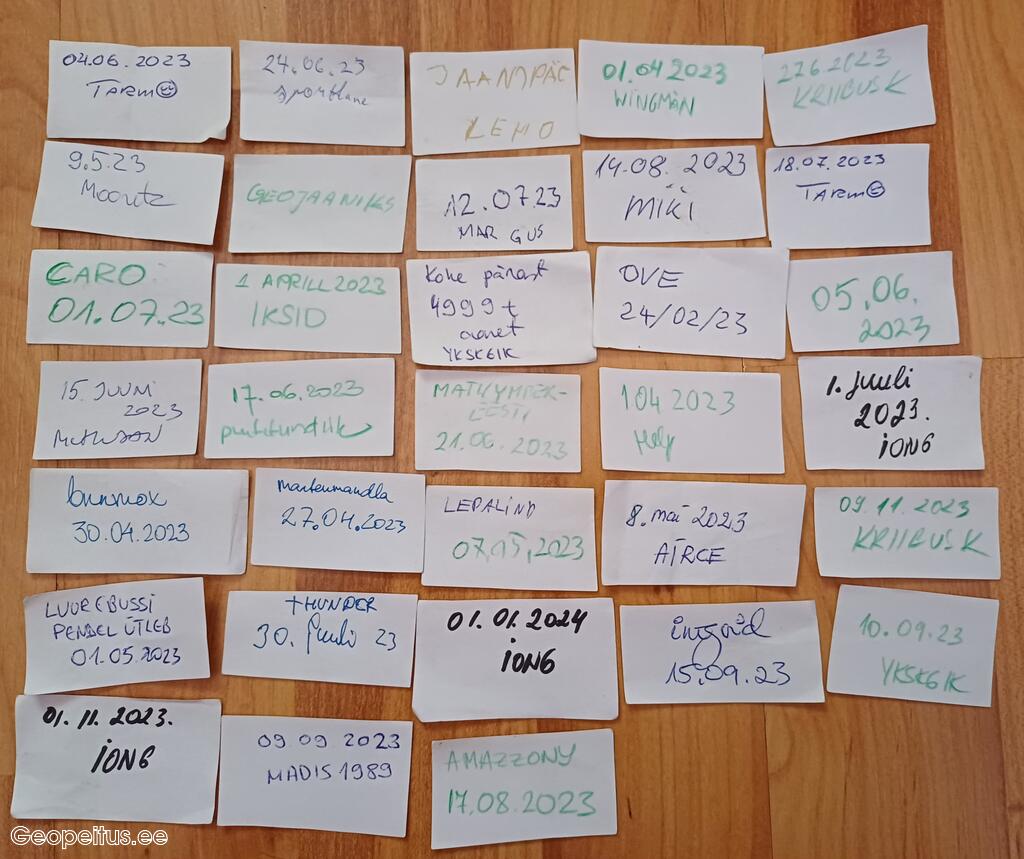 04.06.2023
TARM
24.06.23
sportlane
JAANIPÄE
LEMO
01.04 2023
WINGMAN
22.6.2023
KRIIBUSK
9.5.23
Mooritz
GEOJAANIKS
12.07.23
MARGUS
14.08. 2023
MIKI
18.07.2023
TARM
CARO
01.07.23
1 APRILL 2023
IKSID
Kohe pärast
4999t
avanet
YKSKEIK
OVE
24/02/23
05.06.
2023
15. JUUNI
2023
17.06.2023
puititundlik
MATKYMPER-
LESTI
21.06.2023
1 04 2023
Hely
1. juuli
2023.
iONG
bnnmox
30.04.2023
martenmandla
27.04.2023
LEPALIND
07.15,2023
8. mai 2023
AIRCE
09.11.2023
KRIIBUSK
LUUREBUSSI
PENDEL ÜTLEB
01.05.2023
THUNDER
30. juuli 23
01.01.2024
iONG
ingvild
15.09.23
10.09.23
YKSKEIK
01.11.2023.
iONG
09 09 2023
MADIS1989
AMAZZONY
17.08.2023
Geopeitus.ee